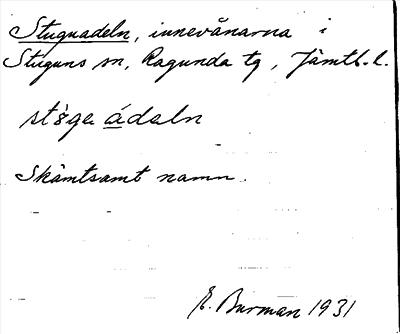 Stuguadeln, innevånarna i
Stuguns sn, Ragunda tg, Jämtl. l.
ádaln
Skämtsamt namn.
E. Burman 1931